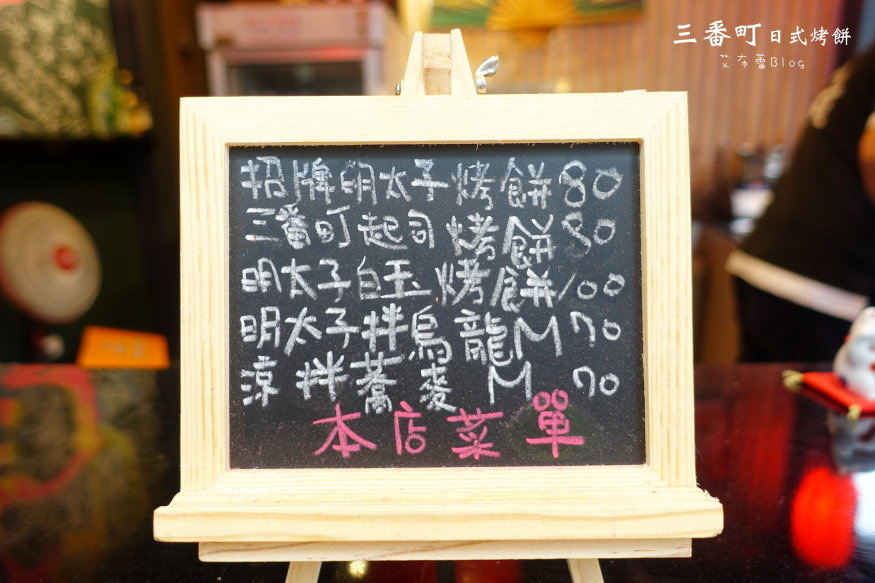 三番町日式烤餅
艾布蕾Blog
招牌明太子烤餅80
三番町起司烤餅80
明太子白玉烤餅100
明太子拌烏龍M70
涼拌蕎麥M70
本店菜單